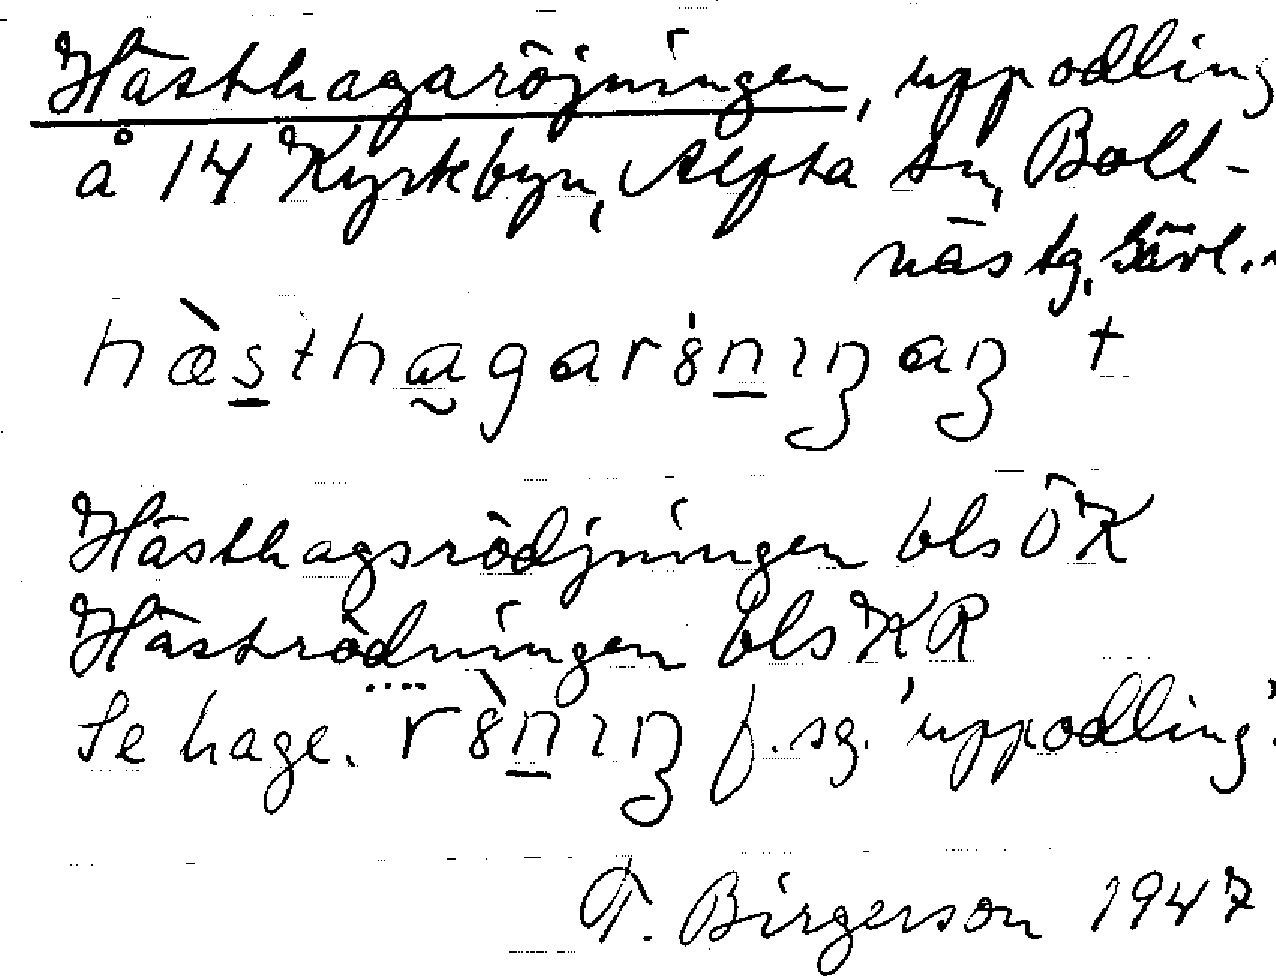 Hästhagaröjningen, uppodling
å 14 Kyrkbyn, Alfta sn, Boll-
näs tg, Gävl.
hæ̀sthagarönıŋaŋ +
Hästhagsrödjningen bls ÖK
Häströdningen bls KR
Se hage. rö̀nıŋ f. sg. 'uppodling'.
T. Birgerson 1947